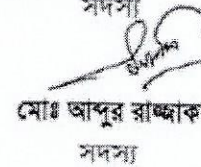 সদস্য
মোঃ আব্দুর রাজ্জাক
সদস্য